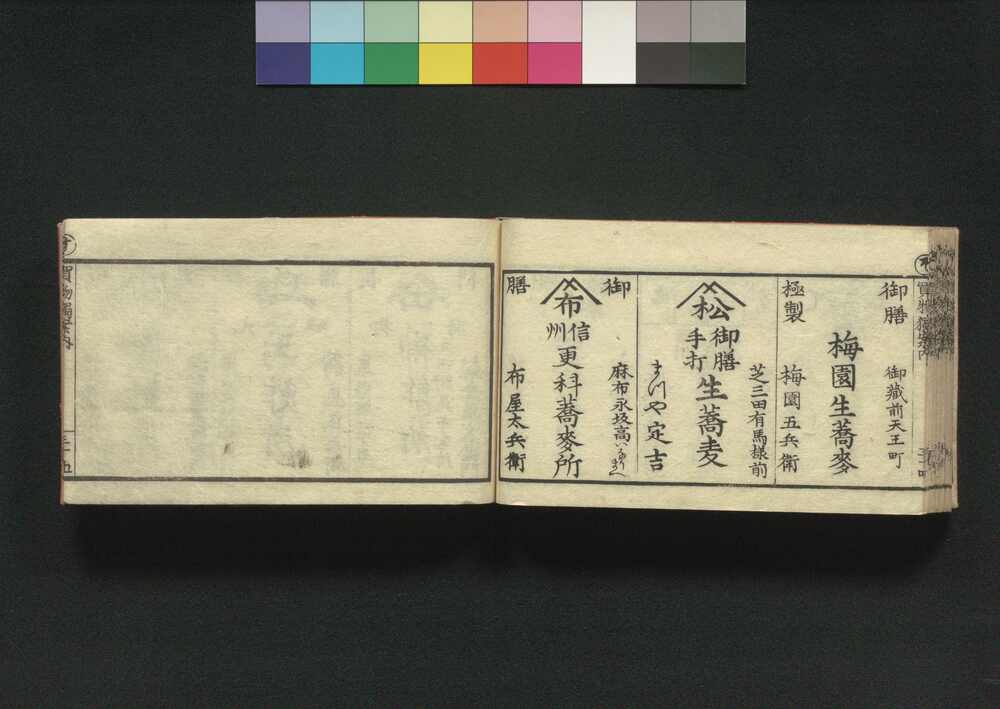 御膳
御蔵前天王町
梅園生蕎麥
極製
梅園五兵衛
芝三田有馬様前
松
御膳
手打
生蕎麦
まつや定吉
御
麻布永坂高いなりまへ
布
信州
更科蕎麥所
膳
布屋太兵衛
買物獨案内
三十五